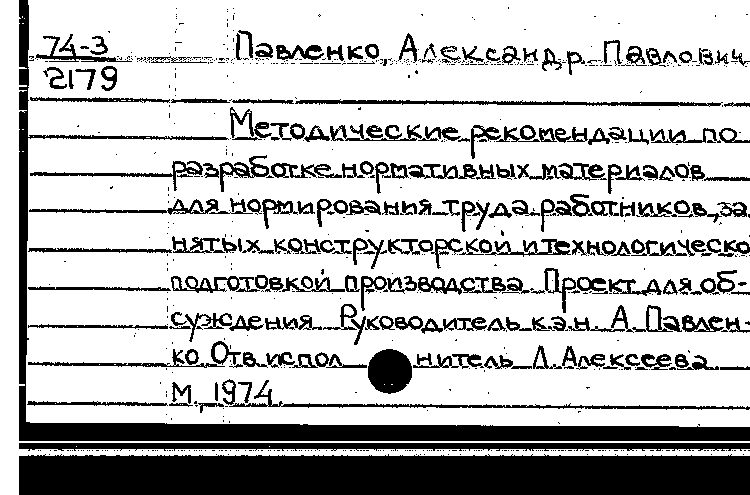 74-3 Павленко, Александр Павлович
2179
Методические рекомендации по
разработке нормативных материалов
для нормирования труда работников, за
нятых конструкторской и технологическо
подготовкой производства Проект для об-
суждения Руководитель к.э.н. А. Павлен-
ко Отв. испол нитель Л. Алексеева
М., 1974.